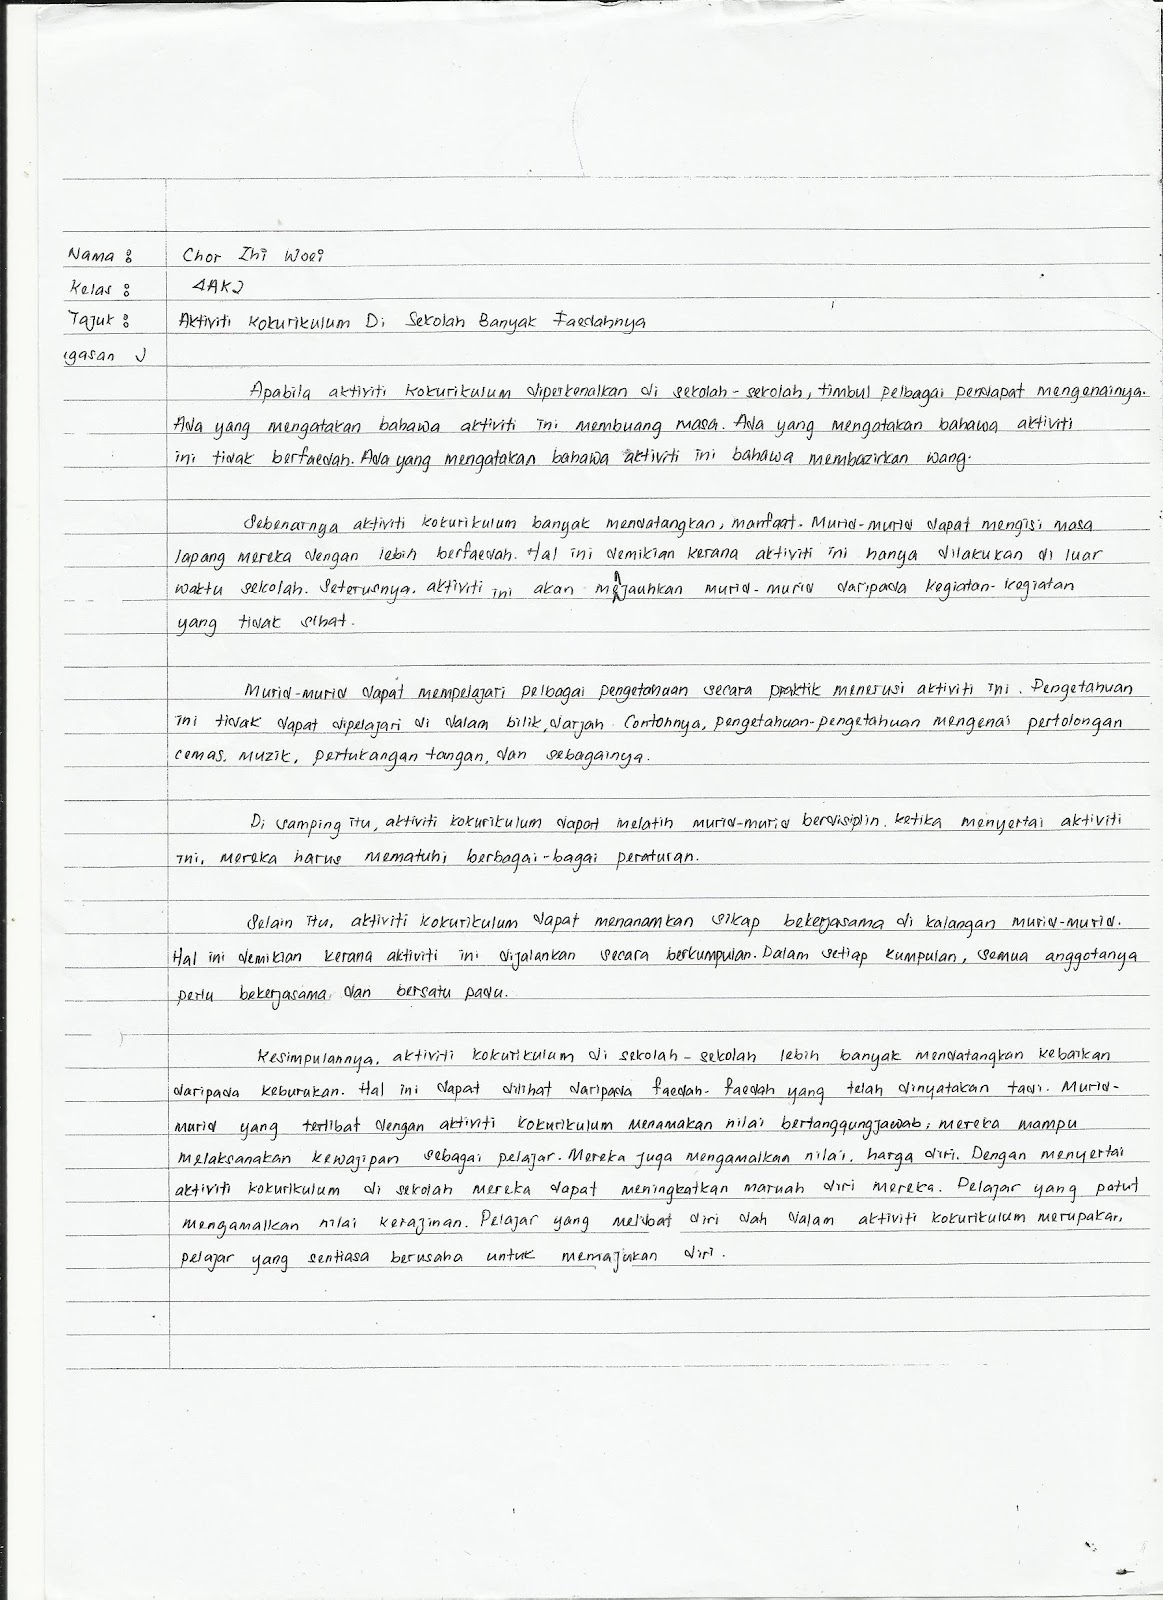 Nama : Chor Zhi Woei
Kelas : 4AK2
Tajuk : Aktiviti Kokurikulum Di Sekolah Banyak Faedahnya
gasan )
Apabila aktiviti kokurikulum diperkenalkan di sekolah-sekolah, timbul pelbagai pendapat mengenainya.
Ada yang mengatakan bahawa aktiviti ini membuang masa. Ada yang mengatakan bahawa aktiviti
ini tidak berfaedah. Ada yang mengatakan bahawa aktiviti ini bahawa membazirkan wang.
Sebenarnya aktiviti kokurikulum banyak mendatangkan, manfaat. Murid-murid dapat mengisi masa
lapang mereka dengan lebih berfaedah. Hal ini demikian kerana aktiviti ini hanya dilakukan di luar
waktu sekolah. Seterusnya, aktiviti ini akan menjauhkan murid-murid daripada kegiatan-kegiatan
yang tidak sihat.
Murid-murid dapat mempelajari pelbagai pengetahuan secara praktik menerusi aktiviti ini. Pengetahuan
ini tidak dapat dipelajari di dalam bilik, darjah. Contohnya, pengetahuan-pengetahuan mengenai pertolongan
cemas, muzik, pertukangan tangan, dan sebagainya.
Di samping itu, aktiviti kokurikulum dapat melatih murid-murid berdisiplin. Ketika menyertai aktiviti
ini, mereka harus mematuhi berbagai-bagai peraturan.
Selain itu, aktiviti kokurikulum dapat menanamkan sikap bekerjasama di kalangan murid-murid.
Hal ini demikian kerana aktiviti ini dijalankan secara berkumpulan. Dalam setiap kumpulan, semua anggotanya
perlu bekerjasama dan bersatu padu.
Kesimpulannya, aktiviti kokurikulum di sekolah-sekolah lebih banyak mendatangkan kebaikan
daripada keburukan. Hal ini dapat dilihat daripada faedah-faedah yang telah dinyatakan tadi. Murid-
murid yang terlibat dengan aktiviti kokurikulum menamakan nilai bertanggungjawab, mereka mampu
melaksanakan kewajipan sebagai pelajar. Mereka juga mengamalkan nilai, harga diri. Dengan menyertai
aktiviti kokurikulum di sekolah mereka dapat meningkatkan maruah diri mereka. Pelajar yang patut
mengamalkan nilai kerajinan. Pelajar yang melibat diri dah dalam aktiviti kokurikulum merupakan,
pelajar yang sentiasa berusaha untuk memajukan diri.